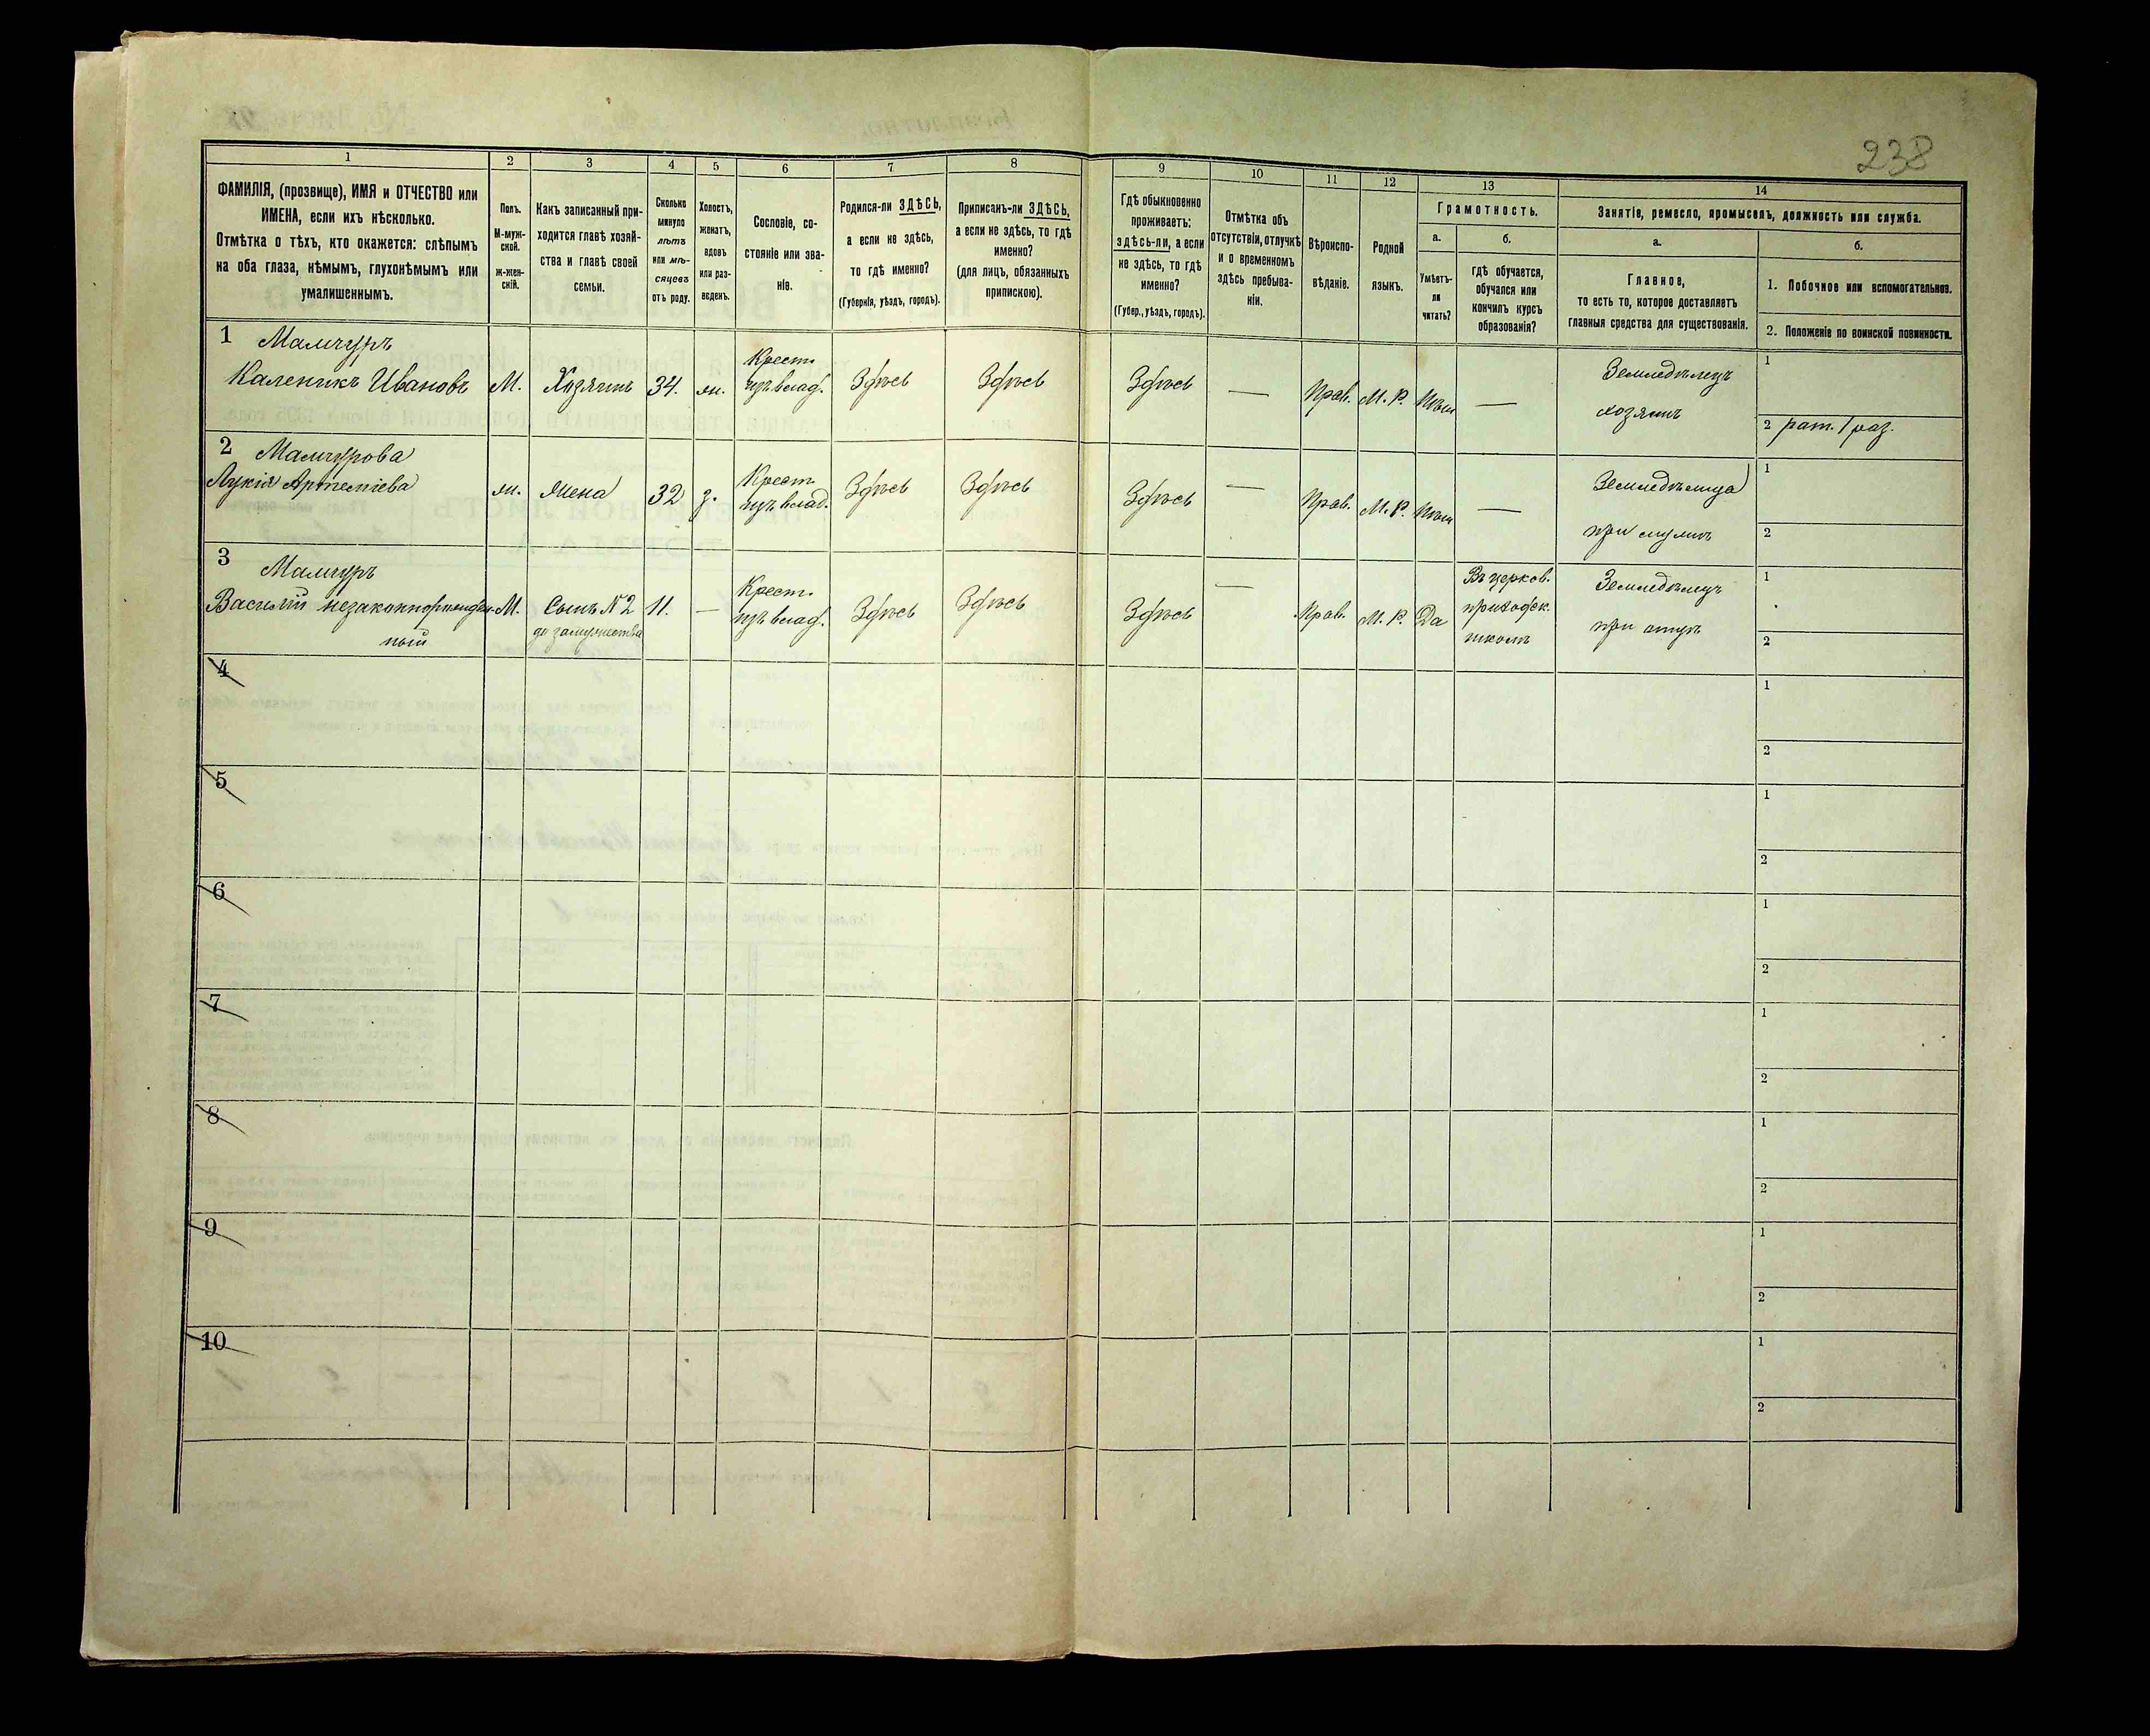 238
1
2
3
4
5
6
7
8
9
10
11
12
13
14
ФАМИЛІЯ, (прозвище), ИМЯ и ОТЧЕСТВО или
ИМЕНА, если ихъ нѣсколько.
Отмѣтка о тѣхъ, кто окажется: слѣпымъ
на оба глаза, нѣмымъ, глухонѣмымъ или
умалишеннымъ.
Полъ.
М-муж-
ской.
Ж-жен-
скій.
Какъ записанный при-
ходится главѣ хозяй-
ства и главѣ своей
семьи.
Сколько
минуло
лѣтъ
или мѣ-
сяцевъ
отъ роду.
Холостъ,
женатъ,
вдовъ
или раз-
веденъ.
Сословіе, со-
стояніе или зва-
ніе.
Родился-ли ЗДѢСЬ,
а если не здѣсь,
то гдѣ именно?
(Губернія, уѣздъ, городъ).
Приписанъ-ли ЗДѢСЬ,
а если не здѣсь, то гдѣ
именно?
(для лицъ, обязанныхъ
припискою).
Гдѣ обыкновенно
проживаетъ:
здѣсь-ли, а если
не здѣсь, то гдѣ
именно?
(Губер., уѣздъ, городъ).
Отмѣтка объ
отсутствіи, отлучкѣ
и о временномъ
здѣсь пребыва-
ніи.
Вѣроиспо-
вѣданіе.
Родной
языкъ.
Грамотность.
а.
Умѣетъ-
ли
читать?
б.
гдѣ обучается,
обучался или
кончилъ курсъ
образованія?
Занятіе, ремесло, промыселъ, должность или служба.
а.
Главное,
то есть то, которое доставляетъ
главныя средства для существованія.
б.
1. Побочное или вспомогательное.
2. Положеніе по воинской повинности.
1 Мамчуръ
Каленикъ Ивановъ
М.
Хозяинъ
34.
ж.
Крест.
изъ влад.
Здѣсь
Здѣсь
Здѣсь
—
Прав.
М. Р.
Нѣтъ
—
Земледѣлецъ
хозяинъ
1
2 рат. 1 раз.
2 Мамчурова
Лукія Артеміева
ж.
Жена
32
з.
Крест.
изъ влад.
Здѣсь
Здѣсь
Здѣсь
—
Прав.
М. Р.
Нѣтъ
—
Земледѣлица
при мужѣ
1
2
3 Мамчуръ
Василій незаконнорожден-
ный
М.
Сынъ №2
до замужества
11.
—
Крест.
изъ влад.
Здѣсь
Здѣсь
Здѣсь
—
Прав.
М. Р.
Да
Въ церков.
приходск.
школѣ
Земледѣлецъ
при отцѣ
1
2
4
1
2
5
1
2
6
1
2
7
1
2
8
1
2
9
1
2
10
1
2